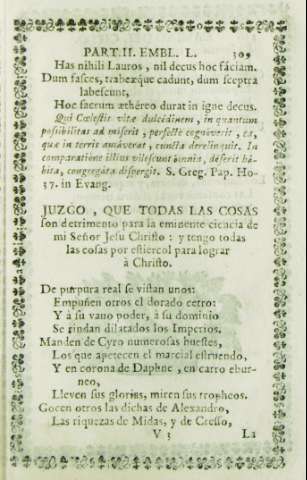 PART. II. EMBL. L. 309
Has nihili Lauros, nil decus hoc fáciam.
Dum fasces, trabexque cadunt, dum sceptra
labescunt,
Hoc sacrum æthéreo durat in igne decus.
Qui Cœlestis vitæ dulcédinem, in quantum
possibilitas admiserit, perfectè cognoverit, ea,
quæ in terris amáverat, cuncta derelinquit. In
comparatióne illius vilescunt ómnia, déserit há-
bita, congregata dispergit. S. Greg. Pap. Ho-
37. in Evang.
JUZGO, QUE TODAS LAS COSAS
son detrimento para la eminente ciencia de
mi Señor Jesu Christo: y tengo todas
las cosas por estiercol para lograr
à Christo.
De purpura real se vistan unos:
Empuñen otros el dorado cetro:
Y à su vano poder, à su dominio
Se rindan dilatados los Imperios.
Manden de Cyro numerosas huestes,
Los que apetecen el marcial estruendo,
Y en corona de Daphne, en carro ebur-
neo,
Lleven sus glorias, miren sus tropheos.
Gocen otros las dichas de Alexandro,
Las riquezas de Midas, y de Cresso,
V 3 La